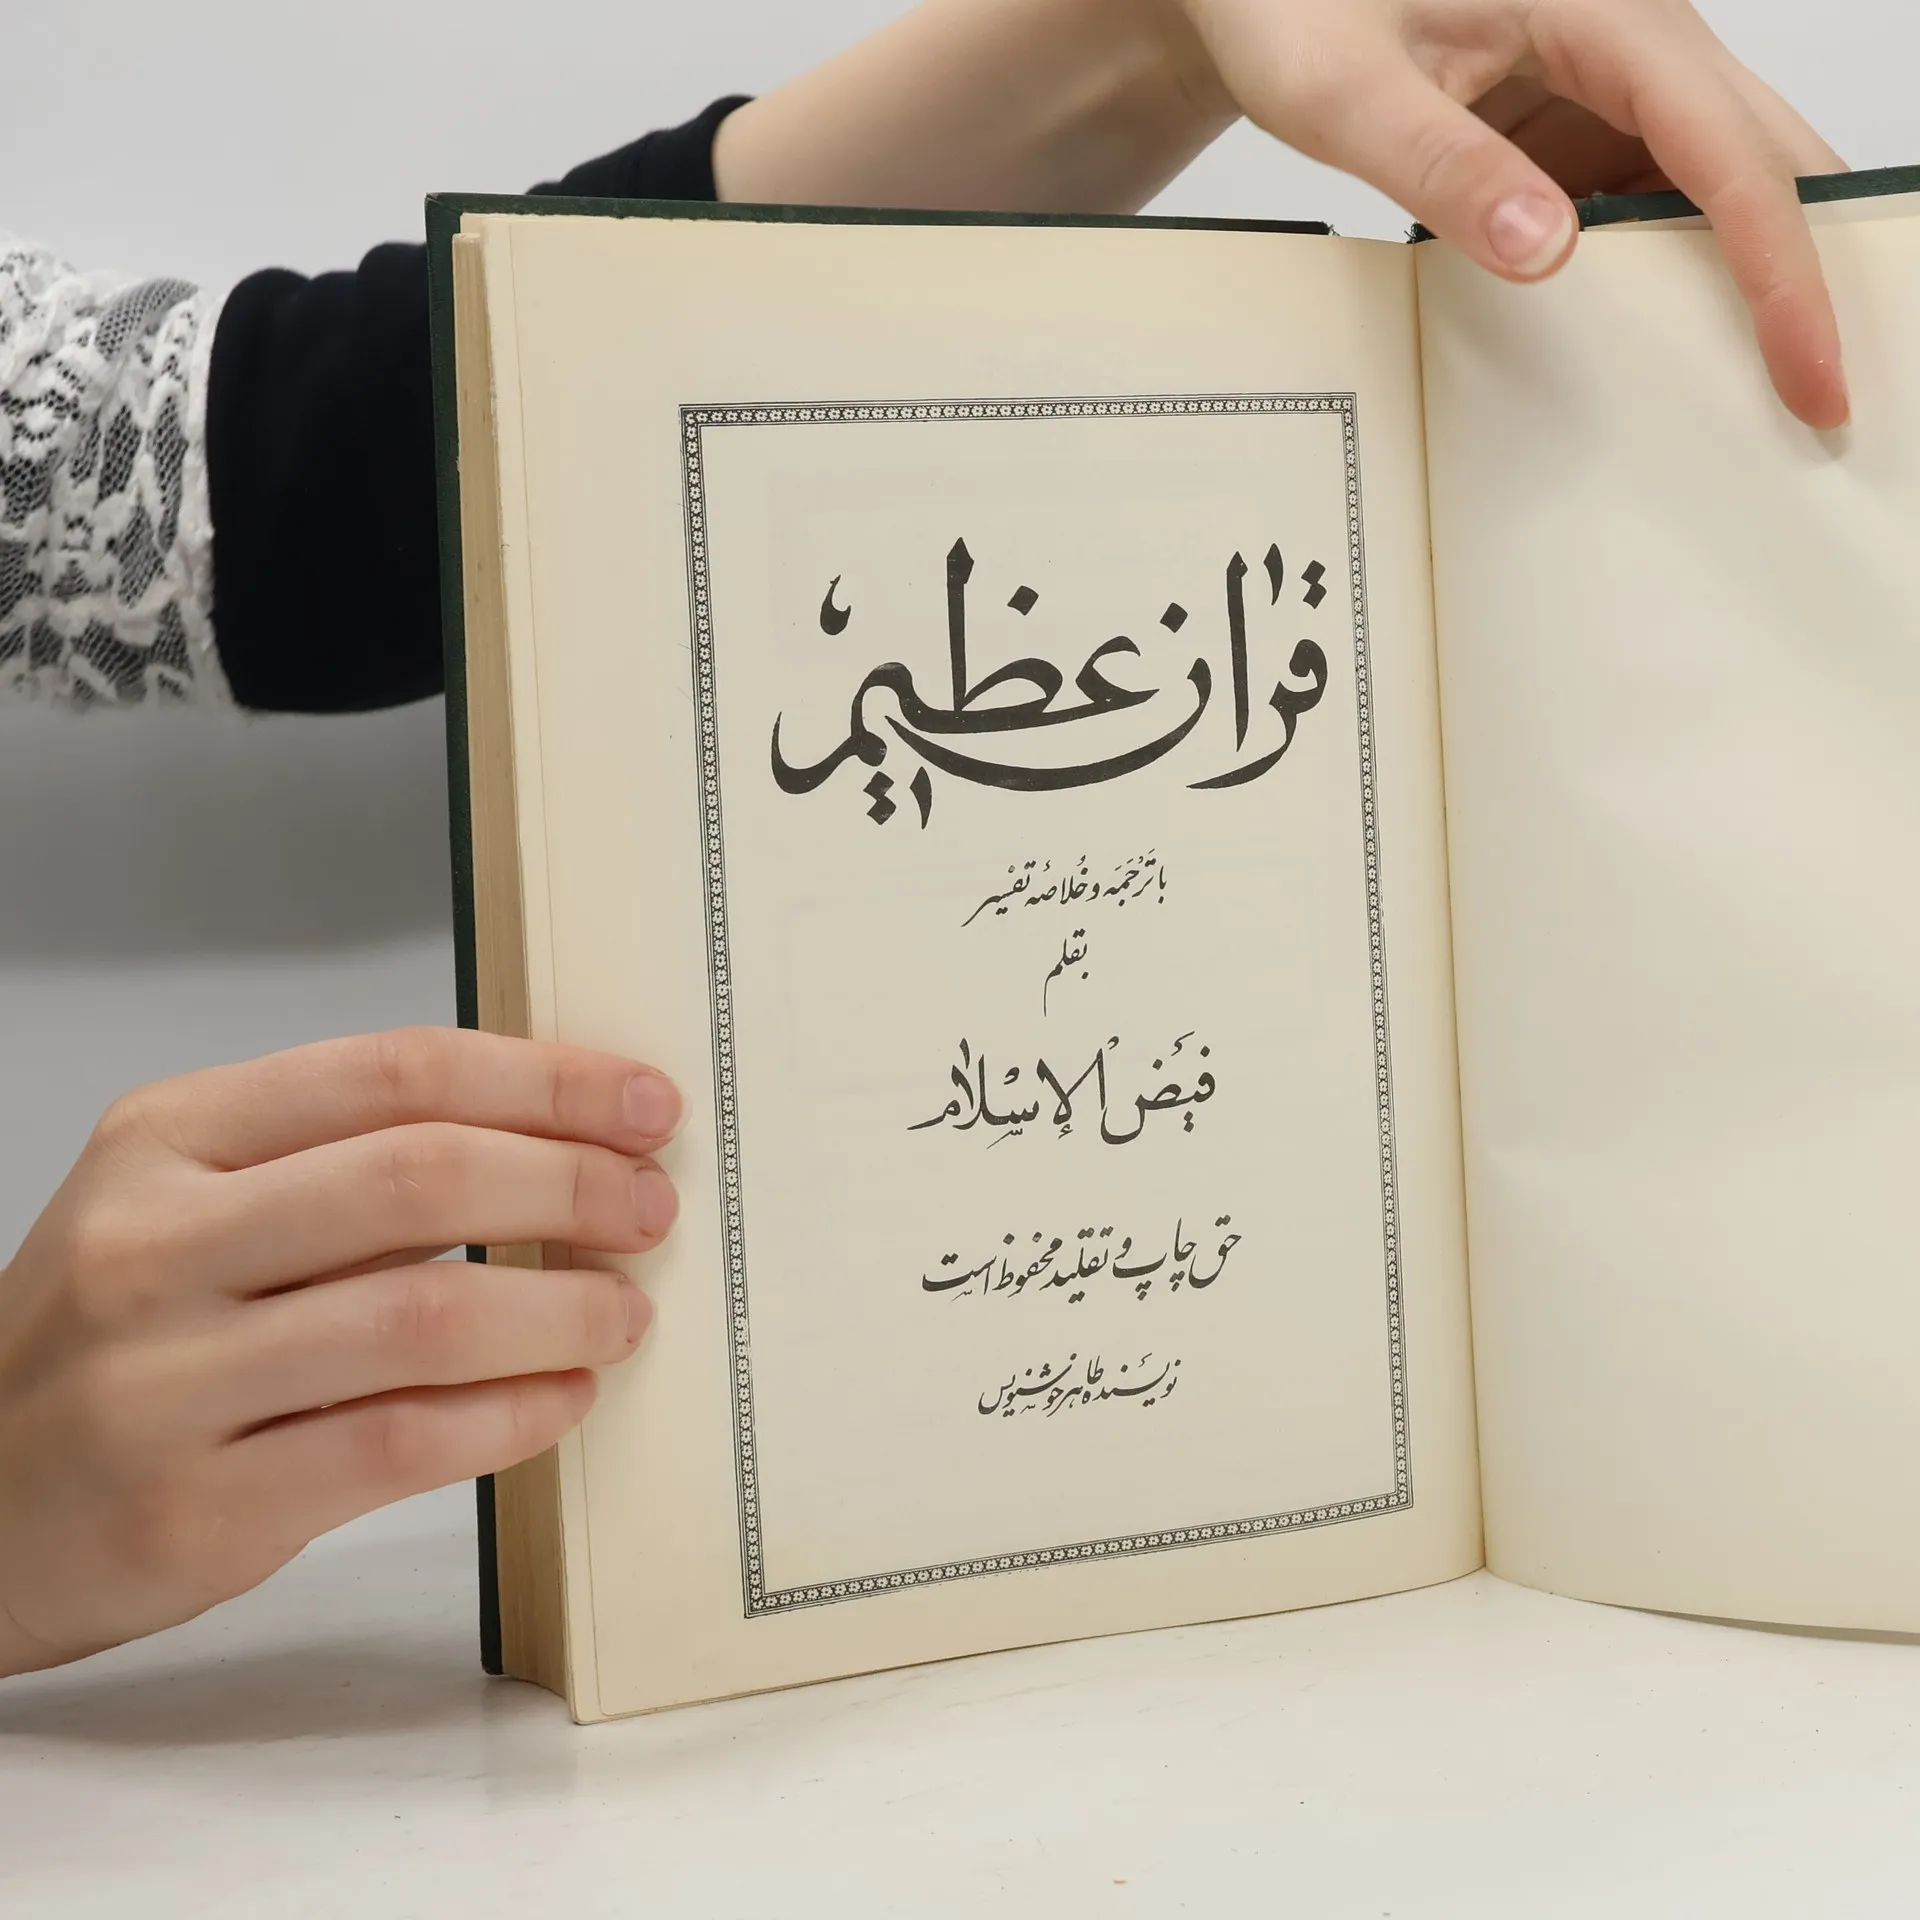 قرآن عظیم
با ترجمه و خلاصهٔ تفسیر
بقلم
فیض الإسلام
حق چاپ و تقلید محفوظ است
نویسنده طاهر خوشنویس